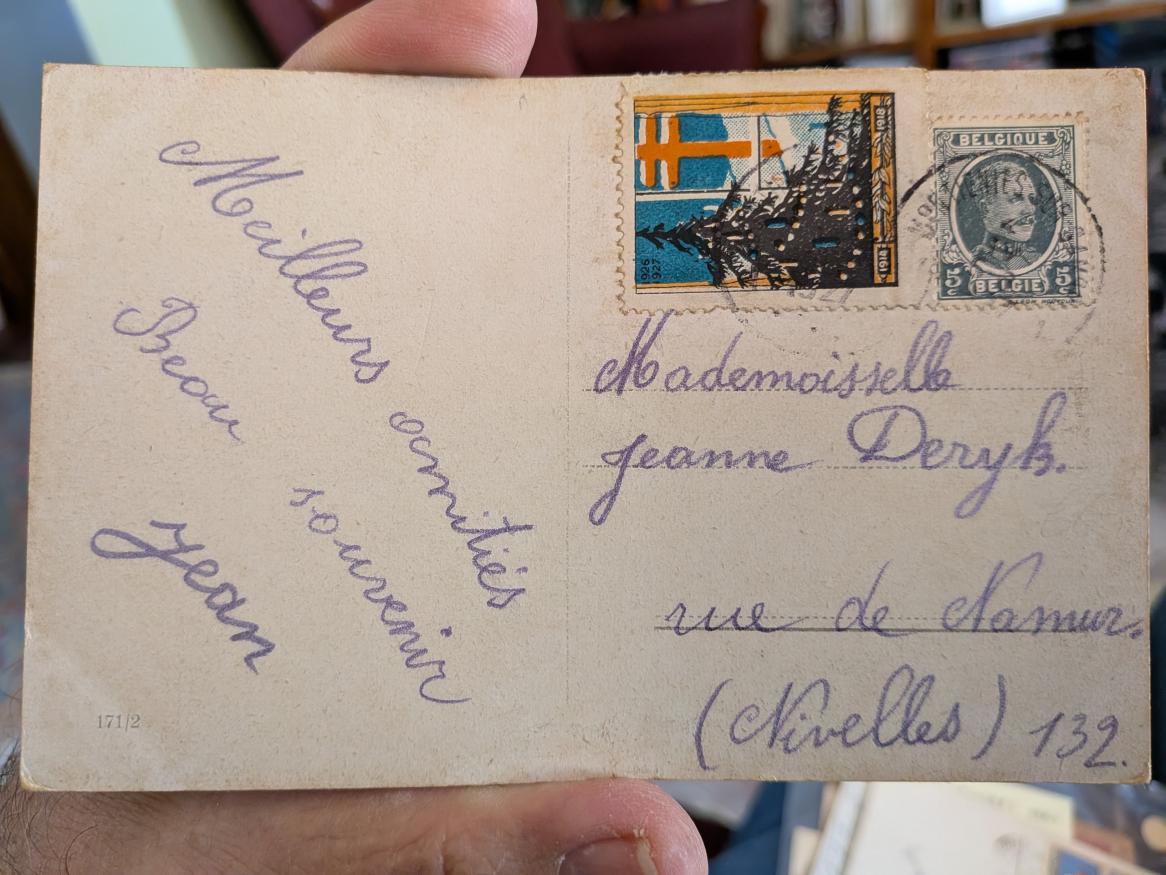 Meilleurs amitiés
Beau souvenir
Jean
171/2
1914 1918
1926
1927
BELGIQUE
5c 5c
BELGIE
1927
Mademoisselle
Jeanne Deryk.
rue de Namur.
(Nivelles) 132.